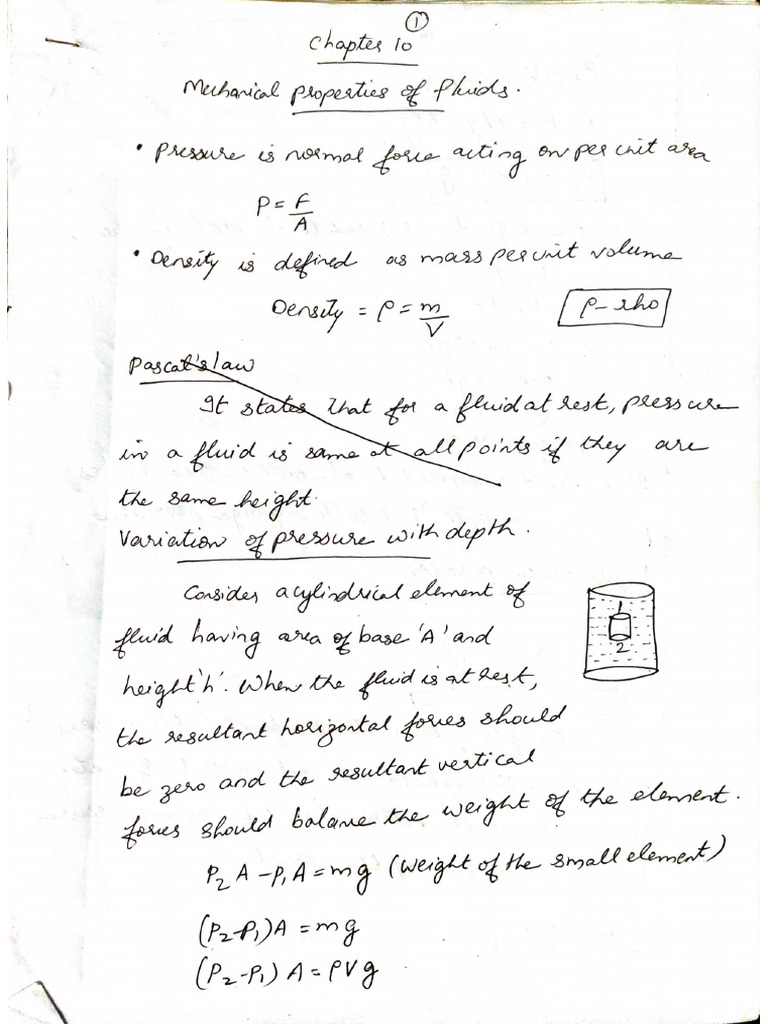 ①
Chapter 10
Mechanical properties of fluids.
• Pressure is normal force acting on per unit area
P = F/A
• Density is defined as mass per unit volume
Density = ρ = m/V
ρ - rho
Pascal's law
It states that for a fluid at rest, pressure
in a fluid is same at all points if they are
the same height.
Variation of pressure with depth.
Consider a cylindrical element of
fluid having area of base 'A' and
height 'h'. When the fluid is at rest,
the resultant horizontal forces should
be zero and the resultant vertical
forces should balance the weight of the element.
1
2
P₂ A - P₁ A = mg (weight of the small element)
(P₂-P₁)A = mg
(P₂-P₁) A = ρVg